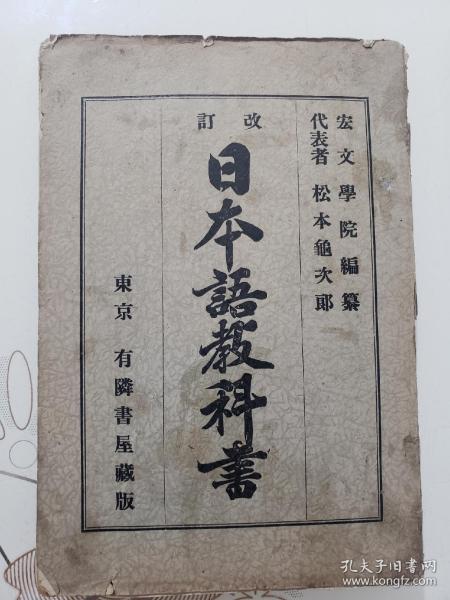 宏文學院編纂
代表者 松本龜次郎
改訂
日本語教科書
東京 有隣書屋藏版
孔夫子旧书网
www.kongfz.com